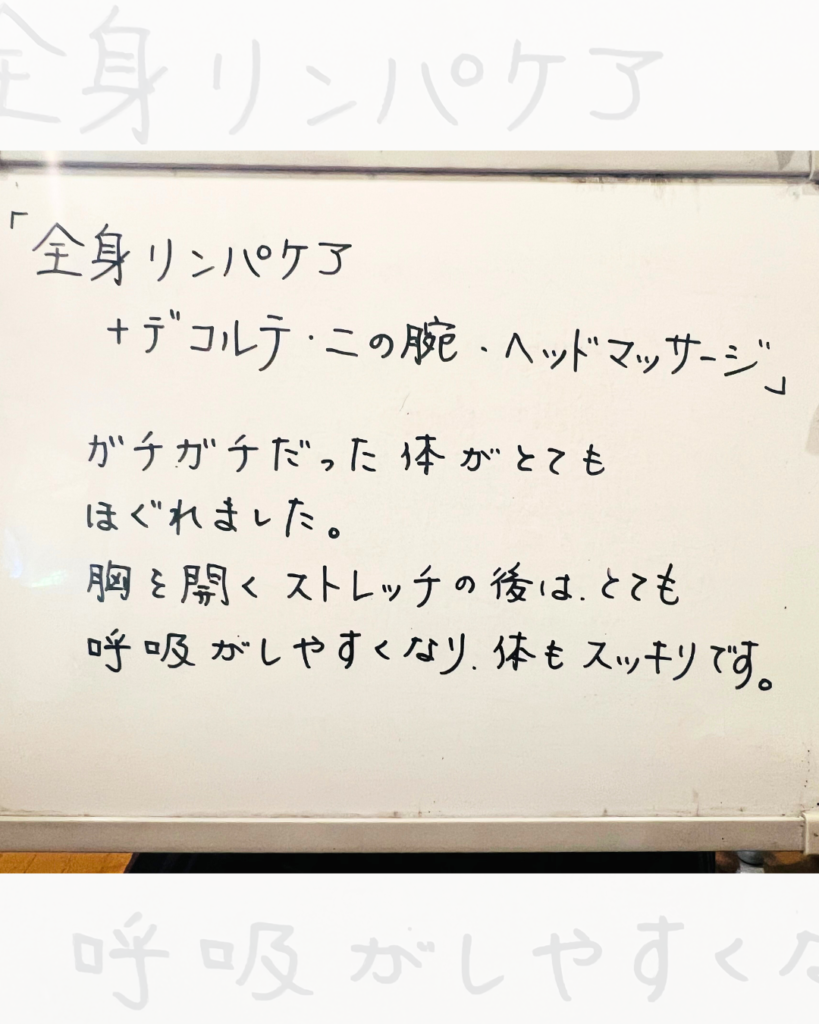 全身リンパケア
「全身リンパケア
+デコルテ・二の腕・ヘッドマッサージ」
ガチガチだった体がとても
ほぐれました。
胸を開くストレッチの後は、とても
呼吸がしやすくなり、体もスッキリです。
呼吸がしやすくな